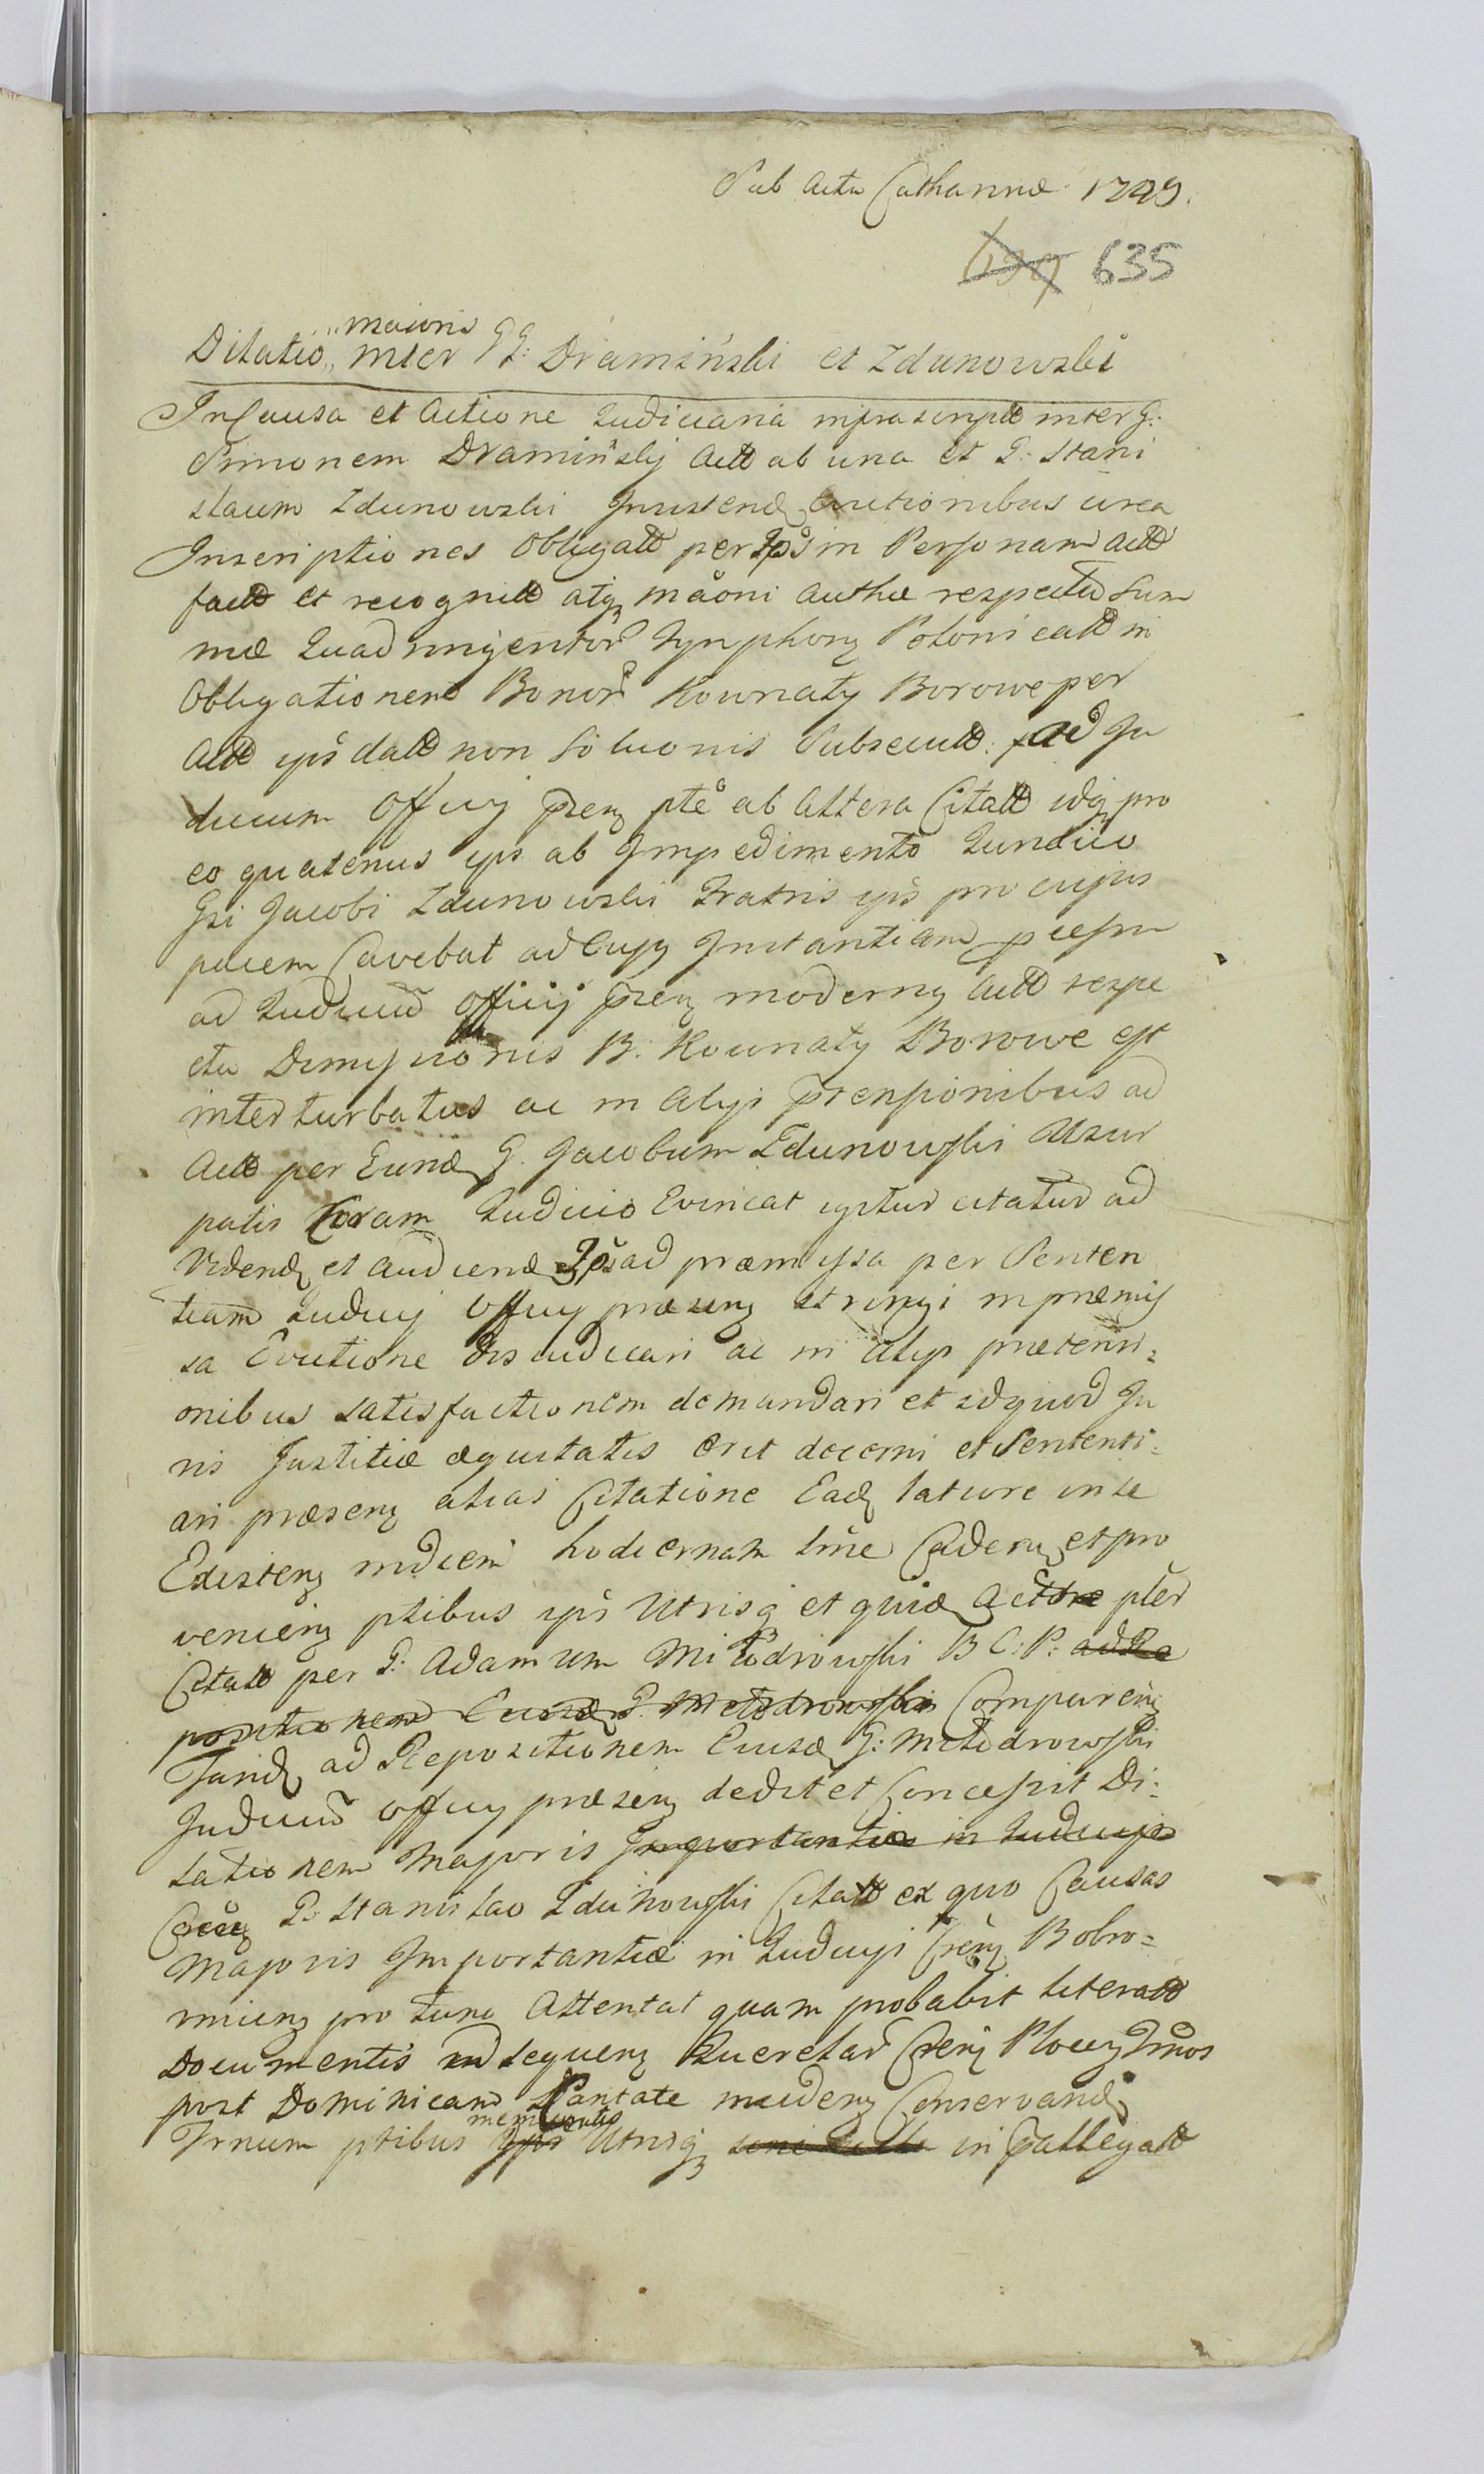 Sub Actu Catharinæ 1749.
635
maioris
Dilatio inter GG: Dramiński et Zdunowski
In Causa et Actione Judiciaria infrascripta inter G:
Simonem Dramińskj Act ab una et G: Stani
slaum Zdunowski Evictionibus circa
Inscriptiones Obligatt per Ips in Personam Actt
factt et recognitt atq maõni Authæ respectu Sum
mæ Quadringentor Polonicatt in
Obligationem Bonor Kownaty Borowe per
Actt ips datt non Subsecutt ad Ju
dicium Officij præn pte ab Altera Citatt idq pro
eo quatenus ips ab Impedimento Juridico
Gsi Jacobi Zdunowski Fratris ips pro cujus
pacem Cavebat ad Cujq Instantiam
ad Judicium Officij præn modernq Actt respe
ctu Dimissionis B: Kownaty Borowe est
interturbatus ac in Alijs prensionibus ad
Actt per Eund G. Jacobum Zdunowski Usur
patis Coram Judicio Evincat igitur citatur ad
Videnq et audienq Ips ad præmissa per Senten
tiam Judicij Officij præsenq stringi in præmis
sa Evictione disiudicari ac in alijs prætensi=
onibus satisfactionem demandari et idquod Ju
ris Justitiæ æquitatis erit decerni et Sententi=
ari præsenq alias Citatione Eadq latiore in se
Existenq in diem hodiernam Cadenq et pro
venienq ptibus ips Utrisq et quidq Actore
Citatt per G: Adamum B C: P: ad Re
positionem Eiusdq G. Comparenq
Tandq ad Repositionem Eiusdq G:
Judicium Officij præsenq dedit et Concessit Di=
lationem Majoris Importantiæ in Judicijs
G: Stanislao Zdunowski Citatt ex quo Causas
Majoris Importantiæ in Judicijs Bobro=
micenq pro tunc Attentat quam probabit literatt
Documentis in sequenq Plocenq
post Dominicam Cantate incidenq Conservandq
memoratis
Trnum ptibus ips Utrisq in Pallegatt